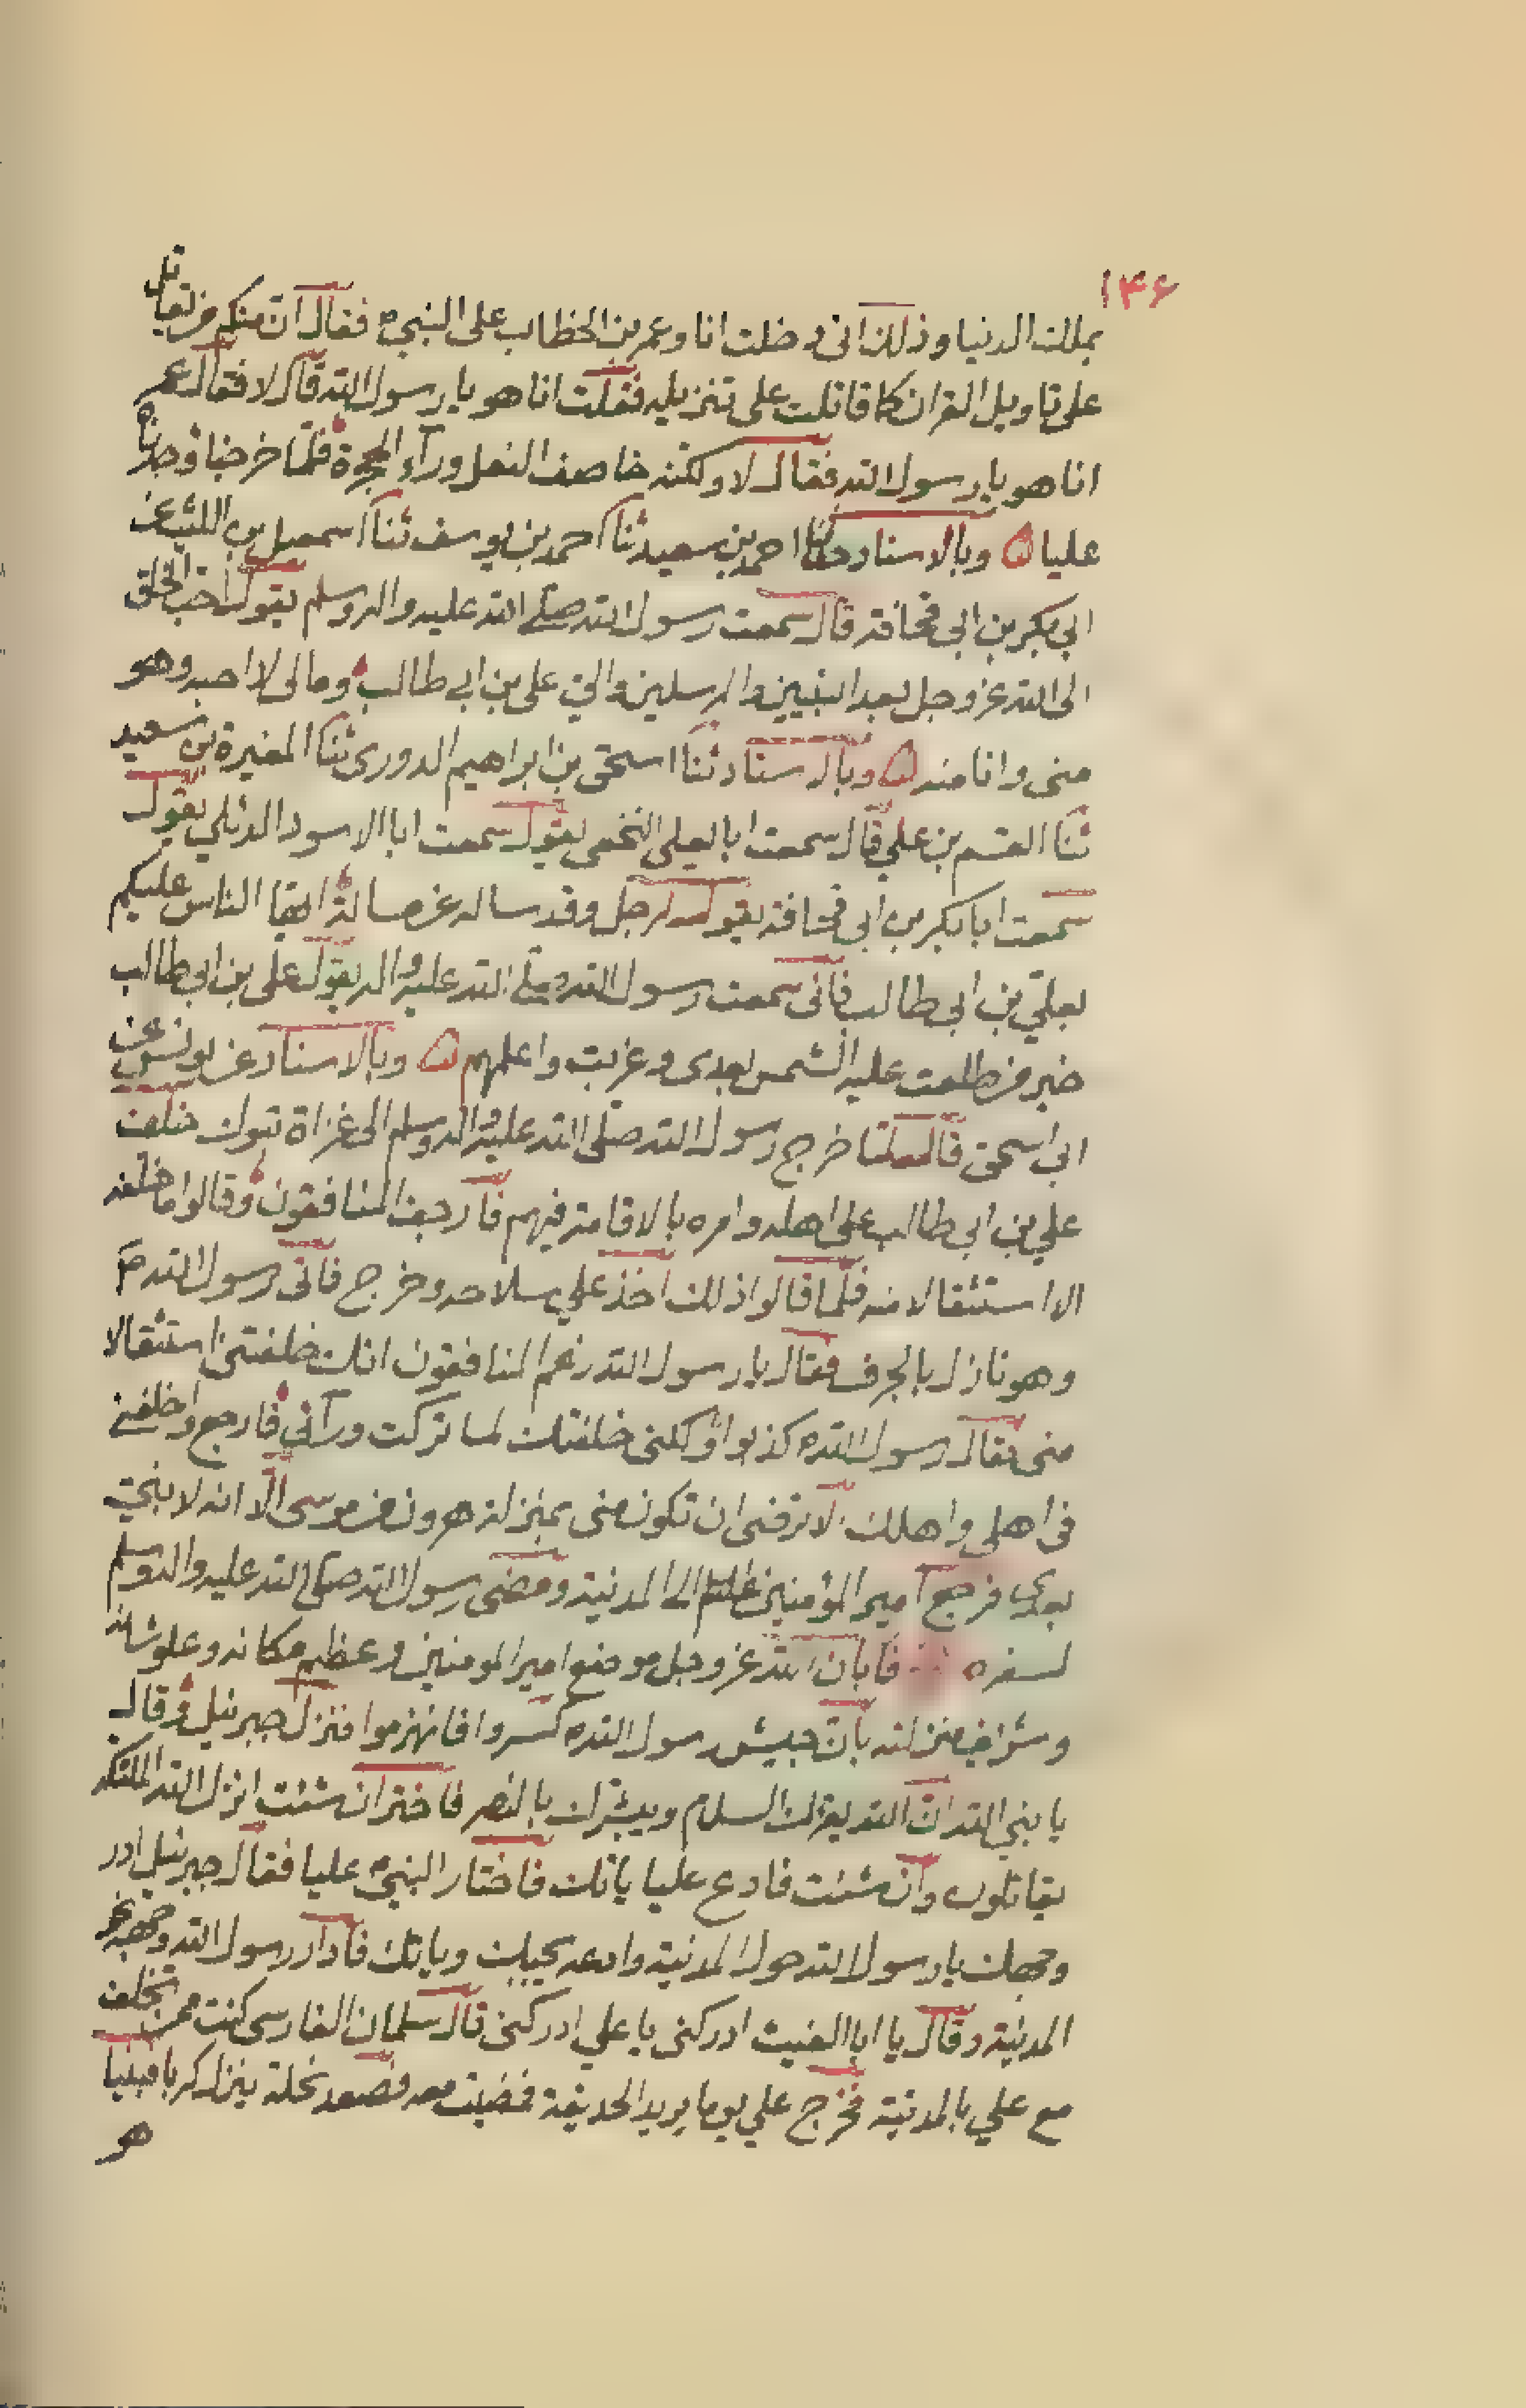 ۱۴۶
بملك الدنيا وذلك انى دخلت انا وعمر بن الخطاب على النبىؐ فقال ان منكم من يقاتل
على تاويل القران كما قاتلت على تنزيله فقلت انا هو يا رسول الله قال لا فقال عمر
انا هو يا رسول الله فقال لا ولكنه خاصف النعل ورآء الحجرة فلما خرجنا وجدناه
عليا ه وبالاسناد حدثنا احمد بن سعيد ثنا احمد بن يوسف ثنا اسمعيل بن الليث عن
ابى بكر بن ابى قحافة قال سمعت رسول الله صلى الله عليه واله وسلم يقول احب الخلق
الى الله عز وجل بعد النبيين والمرسلين والىّ على بن ابى طالب ومالى لا احبه وهو
منى وانا منه ه وبالاسناد ثنا اسحق بن ابراهيم الدورى ثنا المغيرة بن سعيد
ثنا القسم بن علي قال سمعت ابا يعلى النخعى يقول سمعت ابا الاسود الدئلي يقول
سمعت ابا بكر بن ابى قحافة يقول لرجل وقد ساله عن مسالة ايها الناس عليكم
بعلي بن ابى طالب فانى سمعت رسول الله صلى الله عليه واله يقول على بن ابى طالب
خير من طلعت عليه الشمس بعدى وغربت واعلمهم ه وبالاسناد عن يونس عن
ابى اسحق قال لما خرج رسول الله صلى الله عليه واله وسلم الى غزاة تبوك خلف
علي بن ابى طالب على اهله وامره بالاقامة فيهم فارجف المنافقون وقالوا ما خلفه
الا استثقالا منه فلما قالوا ذلك اخذ علي سلاحه وخرج فاتى رسول اللهؐ
وهو نازل بالجرف فقال يا رسول الله زعم المنافقون انك خلفتنى استثقالا
منى فقال رسول اللهؐ كذبوا ولكنى خلفتك لما تركت ورآئى فارجع واخلفنى
فى اهلى واهلك الا ترضى ان تكون منى بمنزلة هرون من موسى الا انه لا نبى
بعدي فرجع امير المؤمنين الى المدينة ومضى رسول الله صلى الله عليه واله وسلم
لسفره فابان الله عز وجل موضع امير المومنين وعظم مكانه وعلو شانه
وشرف منزلته بان جيش رسول اللهؐ كسروا فانهزموا فنزل جبرئيل وقال
يا نبى الله ان الله يقرئك السلام ويبشرك بالنصر فاختر ان شئت انزل الله الملئكة
يقاتلون وان شئت فادع عليا ياتك فاختار النبىؐ عليا فقال جبرئيل ادر
وجهك يا رسول الله حول المدينة وادعه يجيبك وياتك فادار رسول الله وجهه نحو
المدينة وقال يا ابا الغيث ادركنى يا علي ادركنى قال سلمان الفارسى كنت ممن تخلف
مع علي بالمدينة فخرج علي يوما يريد الحديقة فمضيت معه فصعد نخلة ينزل كربا فبينا
هو